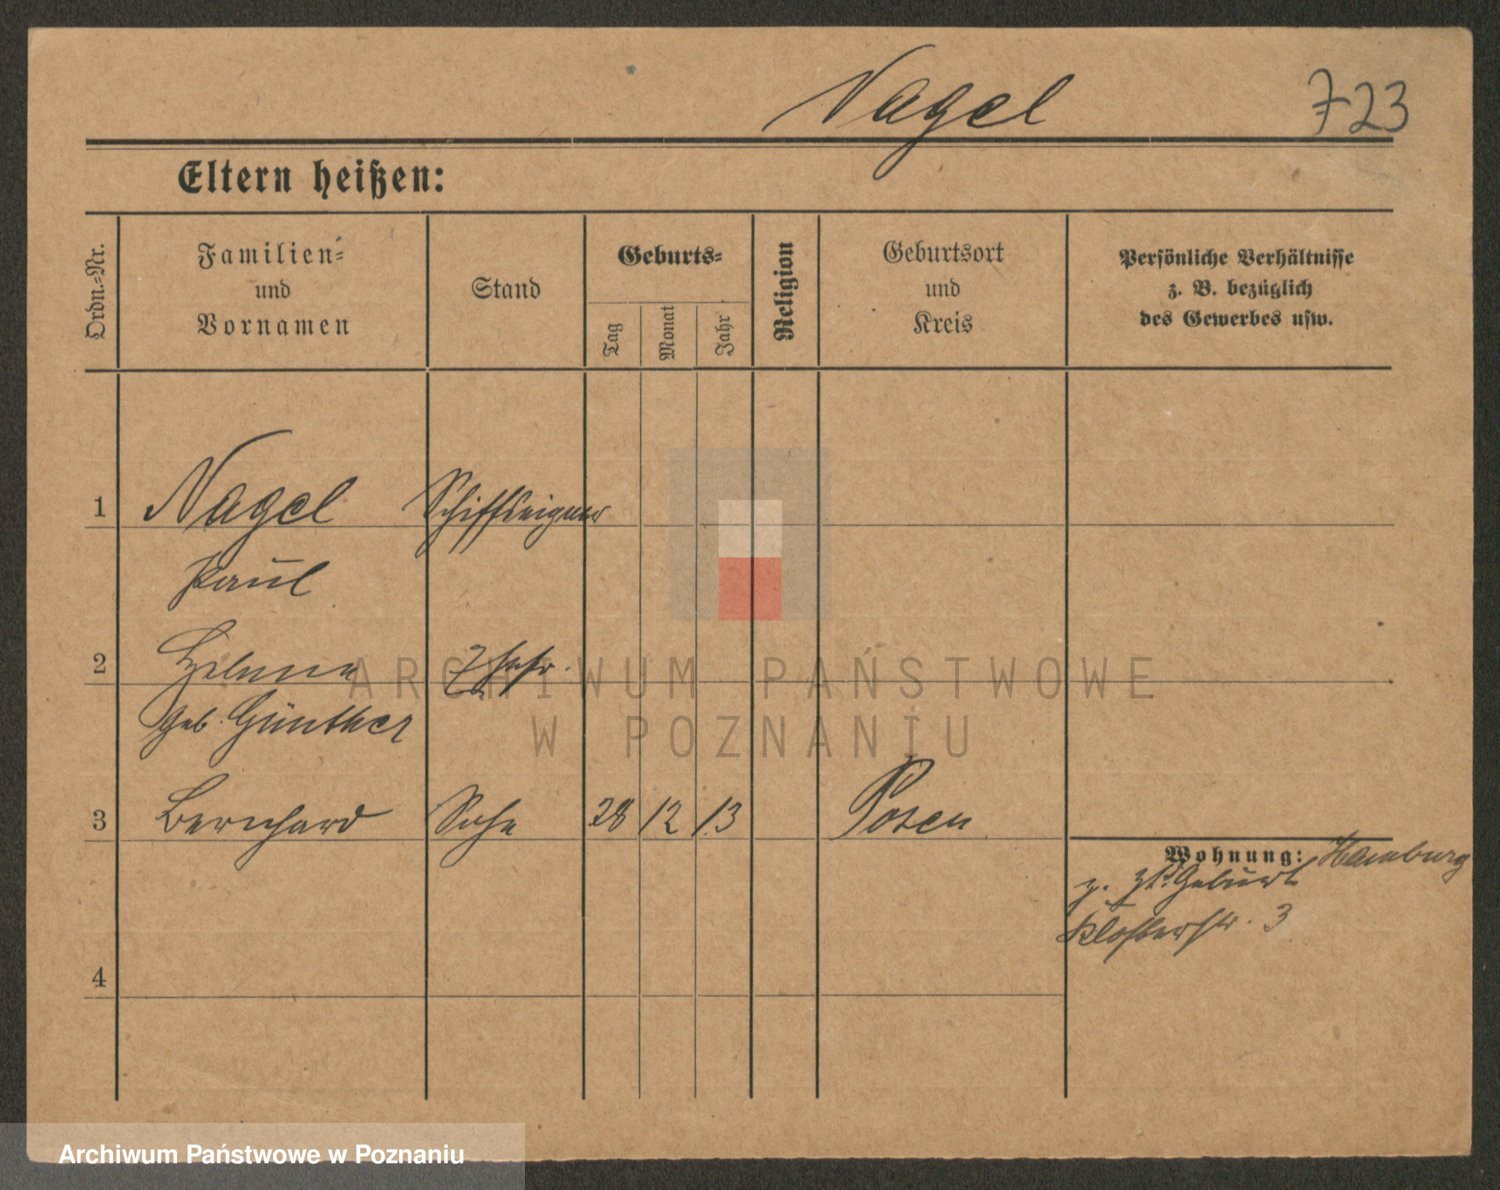 Nagel 723
Eltern heißen:
Ordn.-Nr.
Familien-
und
Vornamen
Stand
Geburts-
Tag
Monat
Jahr
Religion
Geburtsort
und
Kreis
Persönliche Verhältnisse
z. B. bezüglich
des Gewerbes usw.
1 Nagel Schiffseigner
Paul
2 Helene Ehefr.
geb. Günther
3 Bernhard Sohn 28 12 13 Posen
Wohnung: Hamburg
z. Zt. Geburt
Klosterstr. 3
4
ARCHIWUM PAŃSTWOWE
W POZNANIU
Archiwum Państwowe w Poznaniu